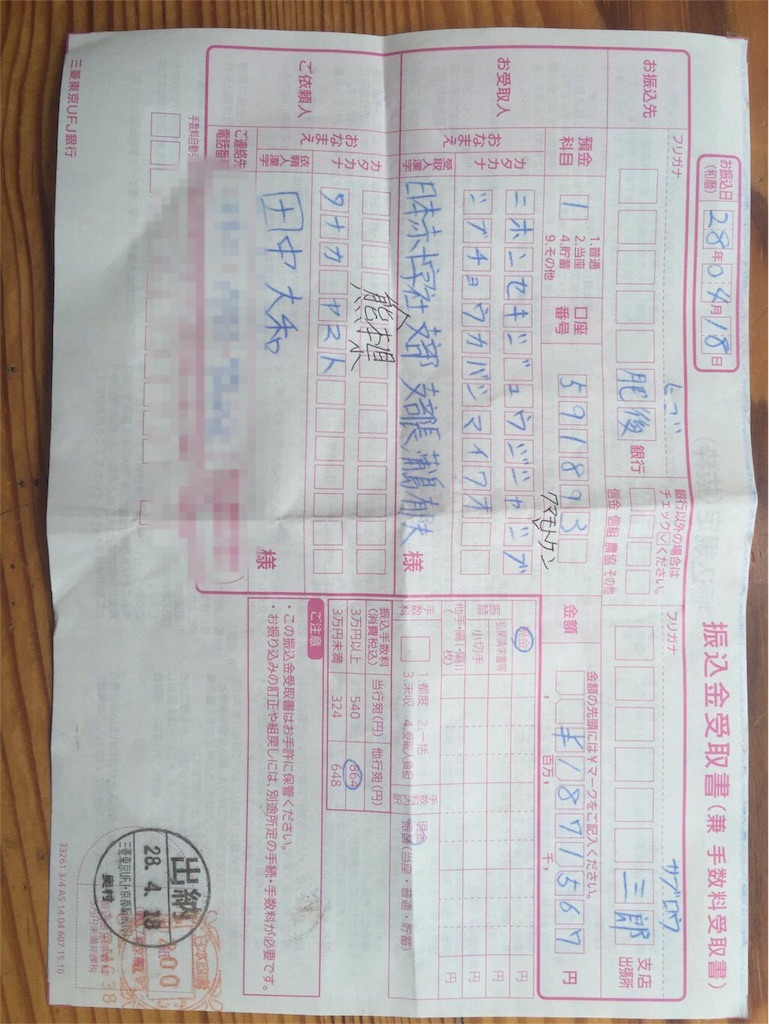 振込金受取書（兼 手数料受取書）
お振込日
（和暦）
28年04月18日
お振込先
フリガナ
ヒゴ
肥後 銀行
銀行以外の場合は
チェック☑ください。
信金 信組 農協 その他
フリガナ
サブロウ
三郎 支店
出張所
預金
科目
1
1.普通
2.当座
4.貯蓄
9.その他
口座
番号
591893
クマモトケン
金額
金額の先頭には¥マークをご記入ください。
百万, 千,
¥1871567円
お受取人
おなまえ
カタカナ
ニホンセキジュウジシャシブ
シブチョウカバシマイクオ
受取人漢字
日本赤十字社 支部 支部長 蒲島郁夫 様
熊本県
ご依頼人
おなまえ
カタカナ
タナカ ヤマト
依頼人漢字
田中大和
様
ご連絡先
電話番号
現金
小切手
手数料
1.都度 2.一括
3.未収
振込手数料
（消費税込）
当行宛（円） 他行宛（円）
3万円以上 540 864
3万円未満 324 648
振替（当座・普通・貯蓄）
円
円
円
ご注意
・この振込金受取書はお手許に保管ください。
・お振り込みの訂正や組戻しには、別途所定の手続・手数料が必要です。
出納
28.4.18
三菱東京UFJ銀行
33261 3/4 A5 14.04.607 15.10